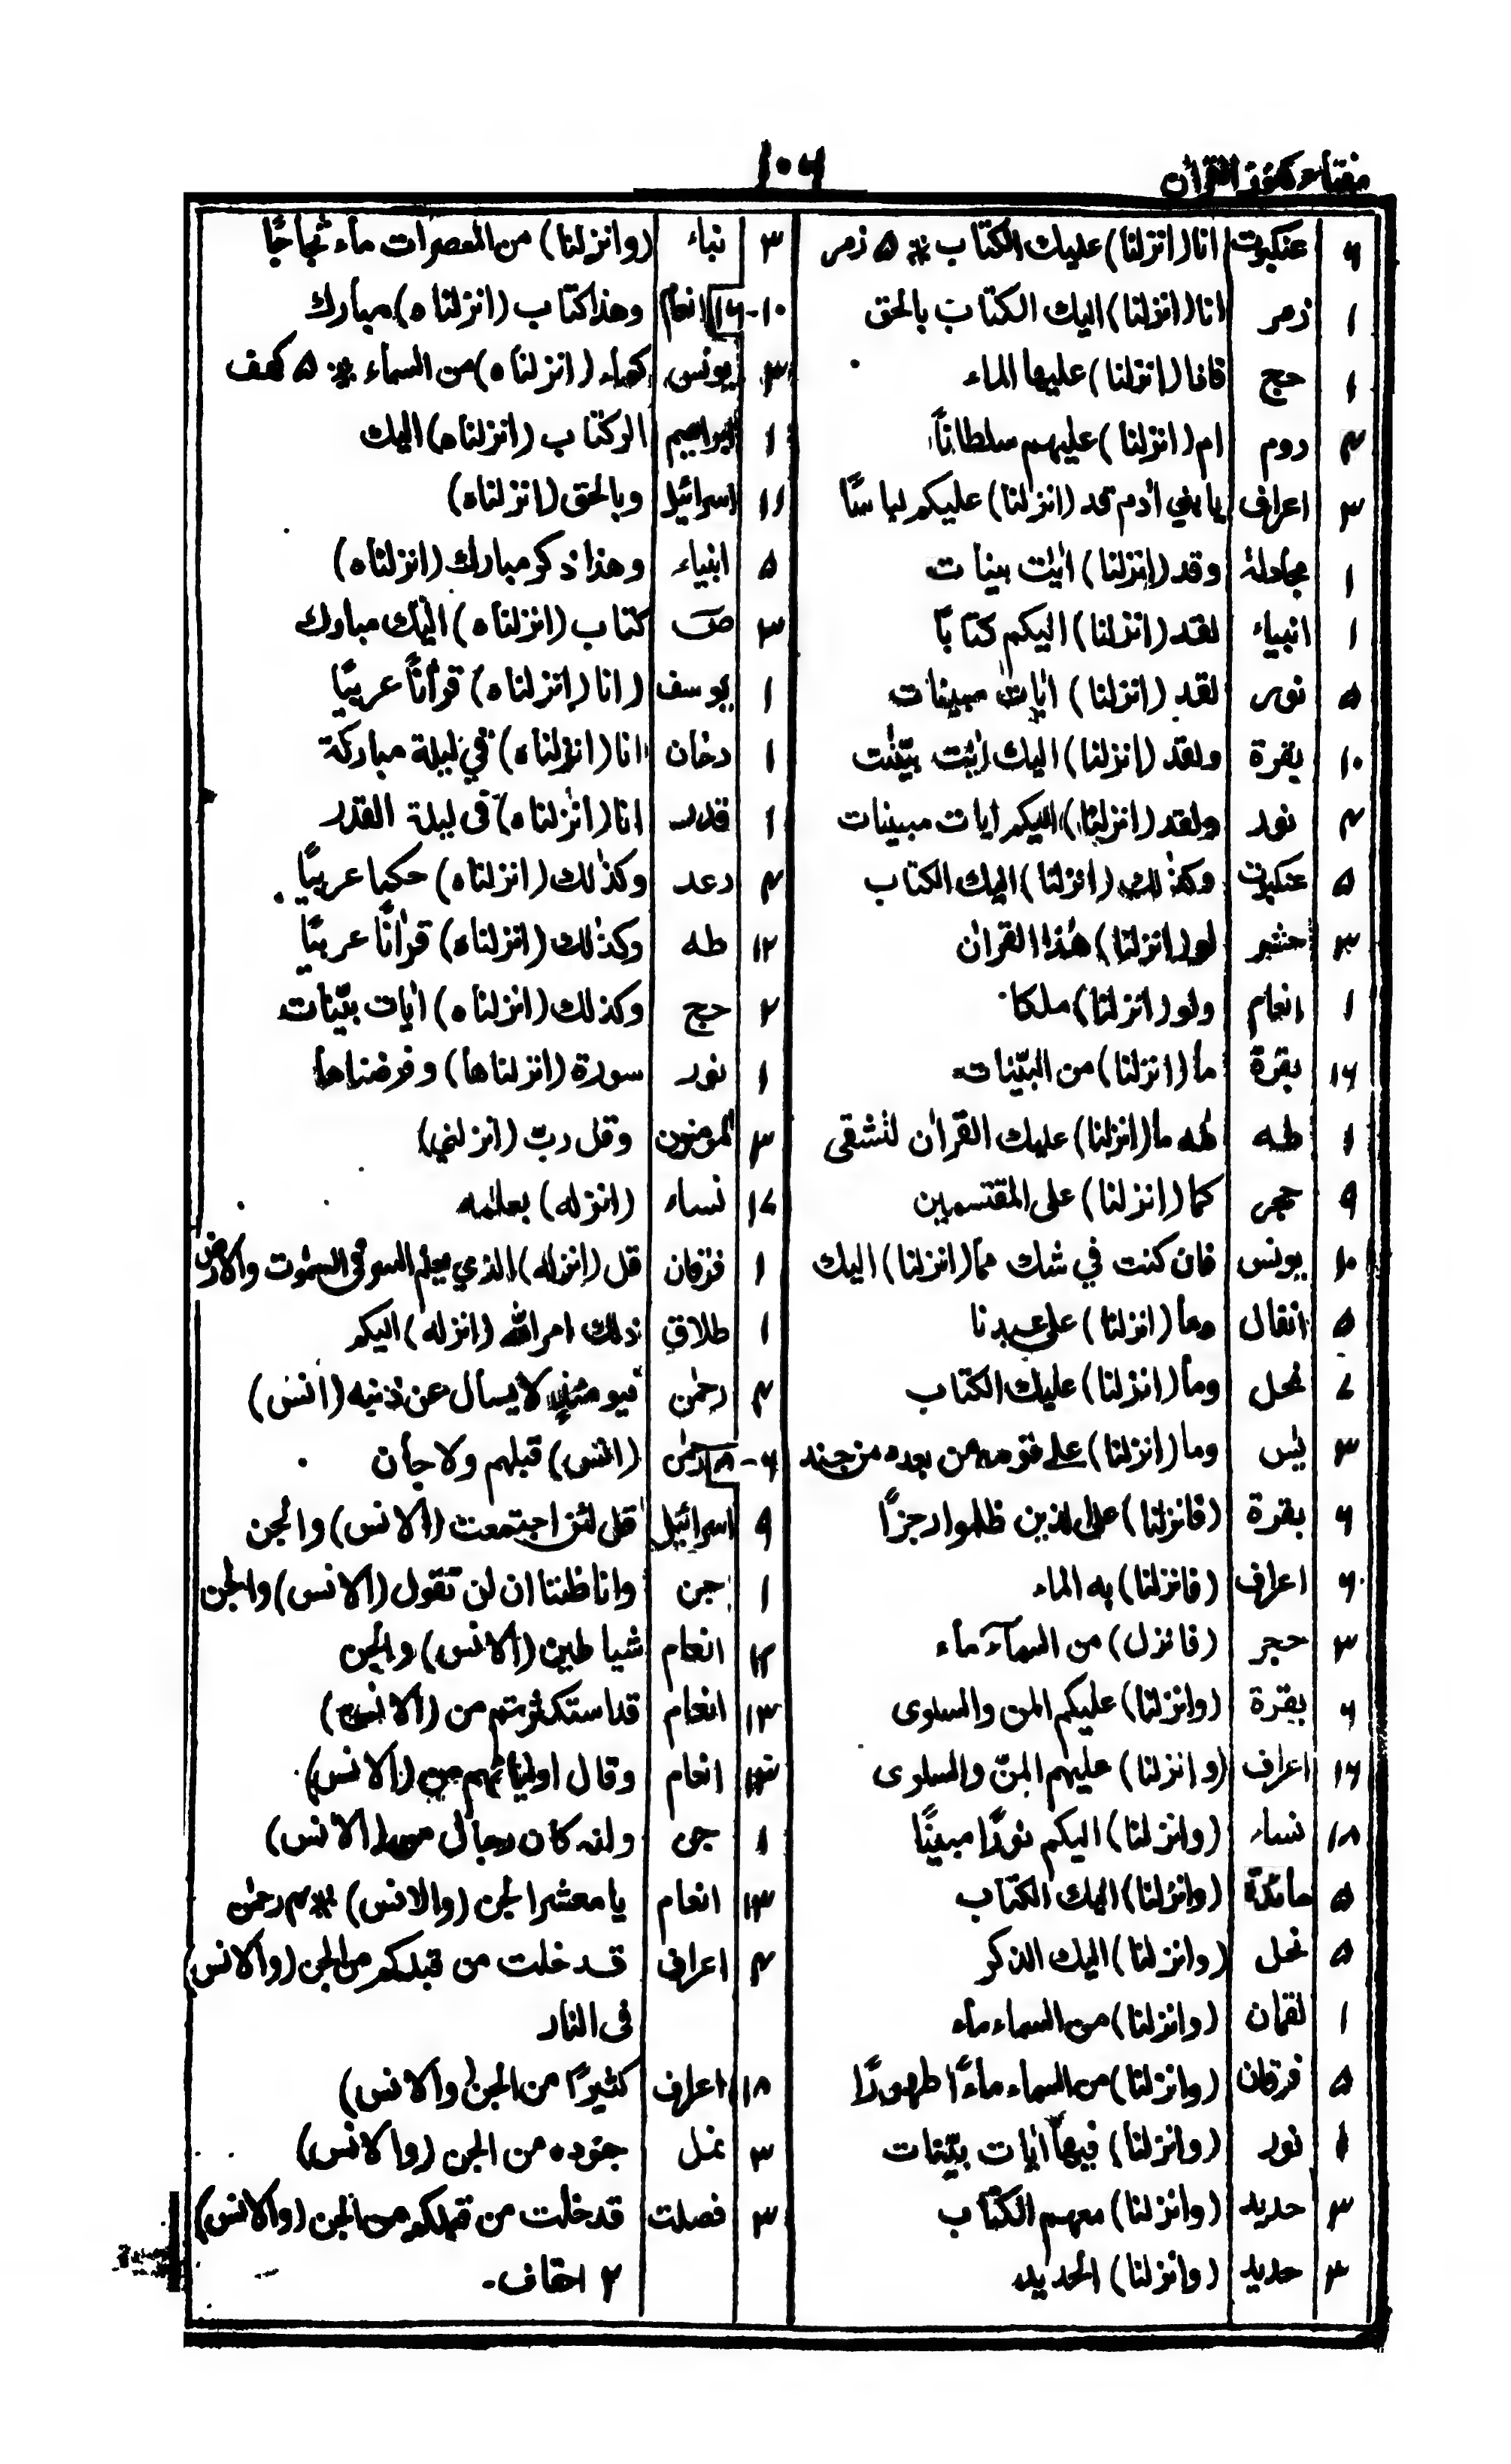 مفتاح كنوز القرآن
۱۰۶
۶ عنكبوت انا (انزلنا) عليك الكتاب * ۵ زمر
۱ زمر انا (انزلنا) اليك الكتاب بالحق
۱ حج فاذا (انزلنا) عليها الماء
۴ روم ام (انزلنا) عليهم سلطانًا
۳ اعراف يا بني اٰدم قد (انزلنا) عليكم لباسًا
۱ مجادلة وقد (انزلنا) اٰيٰت بينات
۱ انبياء لقد (انزلنا) اليكم كتابًا
۵ نور لقد (انزلنا) اٰيات مبينات
۱۰ بقرة ولقد (انزلنا) اليك اٰيٰت بيّنٰت
۴ نور ولقد (انزلنا) اليكم ايات مبينات
۵ عنكبوت وكذٰلك (انزلنا) اليك الكتاب
۳ حشر لو (انزلنا) هٰذا القراٰن
۱ انعام ولو (انزلنا) ملكا
۱۶ بقرة ما (انزلنا) من البيّنات
۱ طه طٰه ما (انزلنا) عليك القراٰن لتشقى
۹ حجر كما (انزلنا) على المقتسمين
۱۰ يونس فان كنت في شك مما (انزلنا) اليك
۵ انفال وما (انزلنا) على عبدنا
۷ نحل وما (انزلنا) عليك الكتاب
۳ يٰس وما (انزلنا) على قومه من بعده من جند
۶ بقرة (فانزلنا) على الذين ظلموا رجزًا
۶ اعراف (فانزلنا) به الماء
۳ حجر (فانزل) من السمآء ماء
۶ بقرة (وانزلنا) عليكم المن والسلوى
۱۶ اعراف (وانزلنا) عليهم المنّ والسلوى
۱۸ نساء (وانزلنا) اليكم نورًا مبينًا
۵ مائدة (وانزلنا) اليك الكتاب
۵ نحل (وانزلنا) اليك الذكر
۱ لقمان (وانزلنا) من السماء ماء
۵ فرقان (وانزلنا) من السماء ماءً طهورًا
۱ نور (وانزلنا) فيها اٰيات بيّنات
۳ حديد (وانزلنا) معهم الكتاب
۳ حديد (وانزلنا) الحديد
۳ نباء (وانزلنا) من المعصرات ماء ثجاجًا
۱۰-۱۶ انعام وهذا كتاب (انزلناه) مبارك
۳ يونس كماء (انزلناه) من السماء * ۵ كهف
۱ ابراهيم الر كتاب (انزلناه) اليك
۱۱ اسرائيل وبالحق (انزلناه)
۵ انبياء وهذا ذكر مبارك (انزلناه)
۳ صٓ كتاب (انزلناه) اليك مبارك
۱ يوسف (انا (انزلناه) قراٰنًا عربيًا
۱ دخان انا (انزلناه) في ليلة مباركة
۱ قدر انا (انزلناه) فى ليلة القدر
۴ رعد وكذٰلك (انزلناه) حكما عربيًا
۱۲ طه وكذٰلك (انزلناه) قراٰنًا عربيًا
۲ حج وكذلك (انزلناه) اٰيات بيّنات
۱ نور سورة (انزلناها) وفرضناها
۳ المومنون وقل ربّ (انزلني)
۱۷ نساء (انزله) بعلمه
۱ فرقان قل (انزله) الذي يعلم السر فى السمٰوت والارض
۱ طلاق ذلك امر الله (انزله) اليكم
۴ رحمٰن فيومئذٍ لا يسال عن ذنبه (انس)
۶-۸ رحمٰن (انس) قبلهم ولا جان
۹ اسرائيل قل لئن اجتمعت (الانس) والجن
۱ جن وانا ظننا ان لن تقول (الانس) والجن
۱۲ انعام شياطين (الانس) والجن
۱۳ انعام قد استكثرتم من (الانس)
۱۳ انعام وقال اولياؤهم من (الانس)
۱ جن وانه كان رجال من (الانس)
۱۳ انعام يا معشر الجن (والانس) * ۴ رحمٰن
۴ اعراف قد خلت من قبلكم من الجن (والانس)
فى النار
۱۸ اعراف كثيرًا من الجن (والانس)
۳ نمل جنوده من الجن (والانس)
۳ فصلت قد خلت من قبلكم من الجن (والانس)
۲ احقاف-